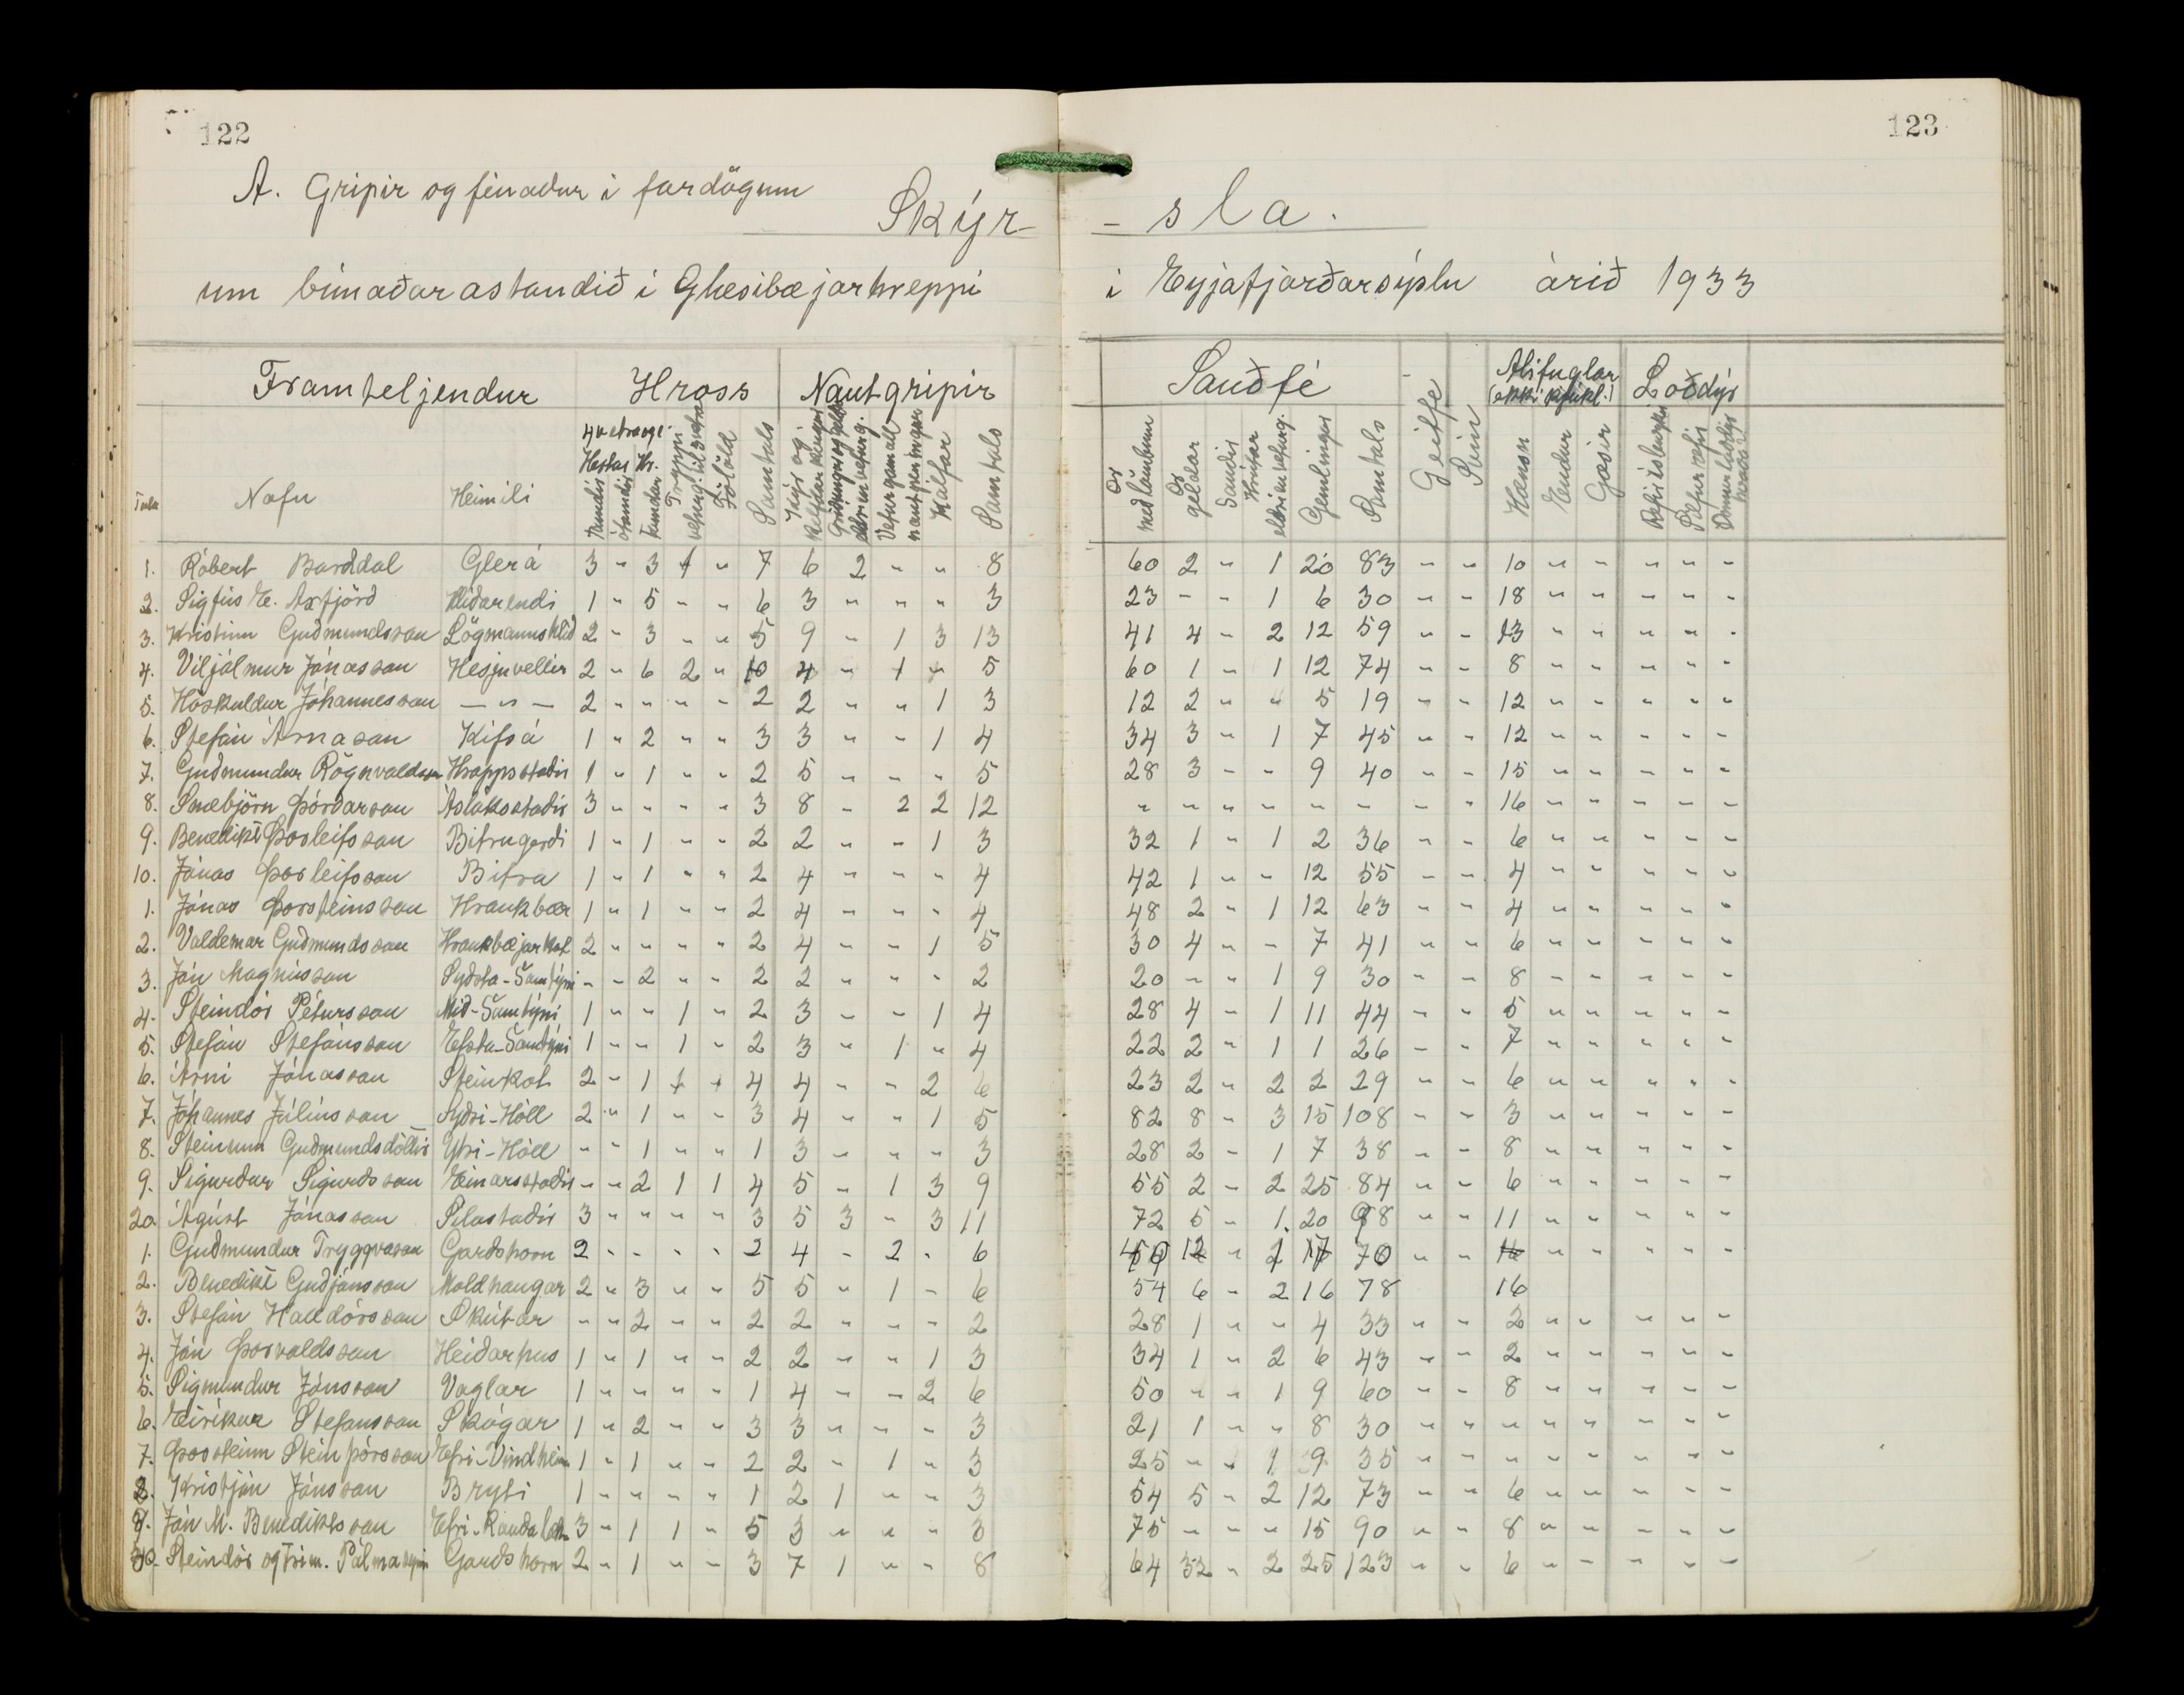 122
123
A. Gripir og fénaður í fardögum
Skýr- -sla.
um búnaðarástandið í Glæsibæjarhreppi í Eyjafjarðarsýslu árið 1933
Framteljendur Hross Nautgripir Sauðfé Geitfé Svín Alifuglar (ekki kjúkl.) Loðdýr
Tala Nafn Heimili 4 vetra og e. Hestar Hr. tamdir ótamdir tamdar Tryppi Folöld Samtals Kýr og kelfdar kvígur Veturgamall nautpeningur Kálfar Samtals Ær með lömbum Ær geldar Sauðir Hrútar eldri en veturg. Gemlingar Samtals Hænsn Endur Gæsir
1. Róbert Bárðdal Glerá 3 " 3 1 " 7 6 2 " " 8 60 2 " 1 20 83 " " 10 " " " " "
2. Sigfús E. Axfjörð Hlíðarendi 1 " 5 " " 6 3 " " " 3 23 " " 1 6 30 " " 18 " " " " "
3. Kristinn Guðmundsson Lögmannshlíð 2 " 3 " " 5 9 " 1 3 13 41 4 " 2 12 59 " " 13 " " " " "
4. Viljálmur Jónasson Hesjuvellir 2 " 6 2 " 10 4 " 1 " 5 60 1 " 1 12 74 " " 8 " " " " "
5. Höskuldur Jóhannesson — " — 2 " " " " 2 2 " " 1 3 12 2 " " 5 19 " " 12 " " " " "
6. Stefán Árnason Kífsá 1 " 2 " " 3 3 " " 1 4 34 3 " 1 7 45 " " 12 " " " " "
7. Guðmundur Rögnvaldsson Hrappsstaðir 1 " 1 " " 2 5 " " " 5 28 3 " " 9 40 " " 15 " " " " "
8. Snæbjörn Þórðarson Ásláksstaðir 3 " " " " 3 8 " 2 2 12 " " " " " " " " 16 " " " " "
9. Benedikt Þorleifsson Bitrugerði 1 " 1 " " 2 2 " " 1 3 32 1 " 1 2 36 " " 6 " " " " "
10. Jónas Þorleifsson Bitra 1 " 1 " " 2 4 " " " 4 42 1 " " 12 55 " " 4 " " " " "
1. Jónas Þorsteinsson Kraukbær 1 " 1 " " 2 4 " " " 4 48 2 " 1 12 63 " " 4 " " " " "
2. Valdemar Guðmundsson Kraukbæjarkot 2 " " " " 2 4 " " 1 5 30 4 " " 7 41 " " 6 " " " " "
3. Jón Magnússon Syðsta-Samtýni " " 2 " " 2 2 " " " 2 20 " " 1 9 30 " " 8 " " " " "
4. Steindór Pétursson Mið-Samtýni 1 " " 1 " 2 3 " " 1 4 28 4 " 1 11 44 " " 5 " " " " "
5. Stefán Stefánsson Efsta-Samtýni 1 " " 1 " 2 3 " 1 " 4 22 2 " 1 1 26 " " 7 " " " " "
6. Árni Jónasson Steinkot 2 " 1 1 " 4 4 " " 2 6 23 2 " 2 2 29 " " 6 " " " " "
7. Jóhannes Júlíusson Syðri-Hóll 2 " 1 " " 3 4 " " 1 5 82 8 " 3 15 108 " " 3 " " " " "
8. Steinunn Guðmundsdóttir Ytri-Hóll " " 1 " " 1 3 " " " 3 28 2 " 1 7 38 " " 8 " " " " "
9. Sigurður Sigurðsson Einarsstaðir " " 2 1 1 4 5 " 1 3 9 55 2 " 2 25 84 " " 6 " " " " "
20 Ágúst Jónasson Sílastaðir 3 " " " " 3 5 3 " 3 11 72 5 " 1. 20 98 " " 11 " " " " "
1. Guðmundur Tryggvason Garðshorn 2 " " " " 2 4 " 2 " 6 12 " 17 70 " " 16 " " " " "
2. Benedikt Guðjónsson Moldhaugar 2 " 3 " " 5 5 " 1 " 6 54 6 " 2 16 78 16
3. Stefán Halldórsson Skútar " " 2 " " 2 2 " " " 2 28 1 " " 4 33 " " 2 " " " " "
4. Jón Þorvaldsson Heiðarhús 1 " 1 " " 2 2 " " 1 3 34 1 " 2 6 43 " " 2 " " " " "
5. Sigmundur Jónsson Vaglar 1 " " " " 1 4 " " 2 6 50 " " 1 9 60 " " 8 " " " " "
6. Eiríkur Stefánsson Skógar 1 " 2 " " 3 3 " " " 3 21 1 " " 8 30 " " " " " " " "
7. Þorsteinn Steinþórsson Efri-Vindheim 1 " 1 " " 2 2 " 1 " 3 25 " " 1 9 35 " " " " " " " "
8. Kristján Jónsson Bryti 1 " " " " 1 2 1 " " 3 54 5 " 2 12 73 " " 6 " " " " "
9. Jón M. Benediktsson Efri-Rauðalæk 3 " 1 1 " 5 3 " " " 3 75 " " " 15 90 " " 8 " " " " "
30. Steindór og Frím. Pálmasynir Garðshorn 2 " 1 " " 3 7 1 " " 8 64 32 " 2 25 123 " " 6 " " " " "